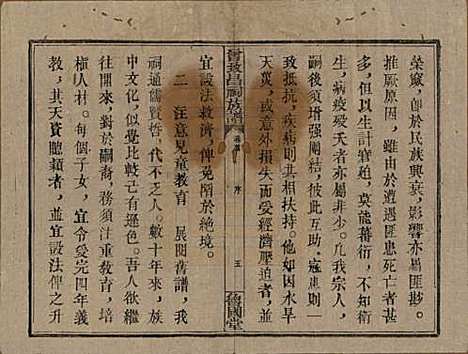 榮竅，卽於民族興衰，影響亦屬匪尠。
推厥原因，雖由於遭遇匪患死亡者甚
多，但以生計窘廹，莫能蕃衍，不知衛
生，病疫殀夭者亦屬非少。凡我宗人，
嗣後須增强團結，彼此互助，寇焦則一
致抵抗，疾病則共相扶持。他如因水旱
天災，或意外損失而受經濟壓迫者，尤
宜設法救濟，俾免陷於絕境。
卷首 序 五
二 注意兒童教育 展閱舊譜，我
祠通儒賢哲，代不乏人。數十年來，族
中文化，似覺比較己有遜色。吾人欲繼
往開來，對於嗣裔，務注重教育，培
植人材。每個子女，宜令受完四年義
務教育，其天資聰穎者，並宜設法俾之升